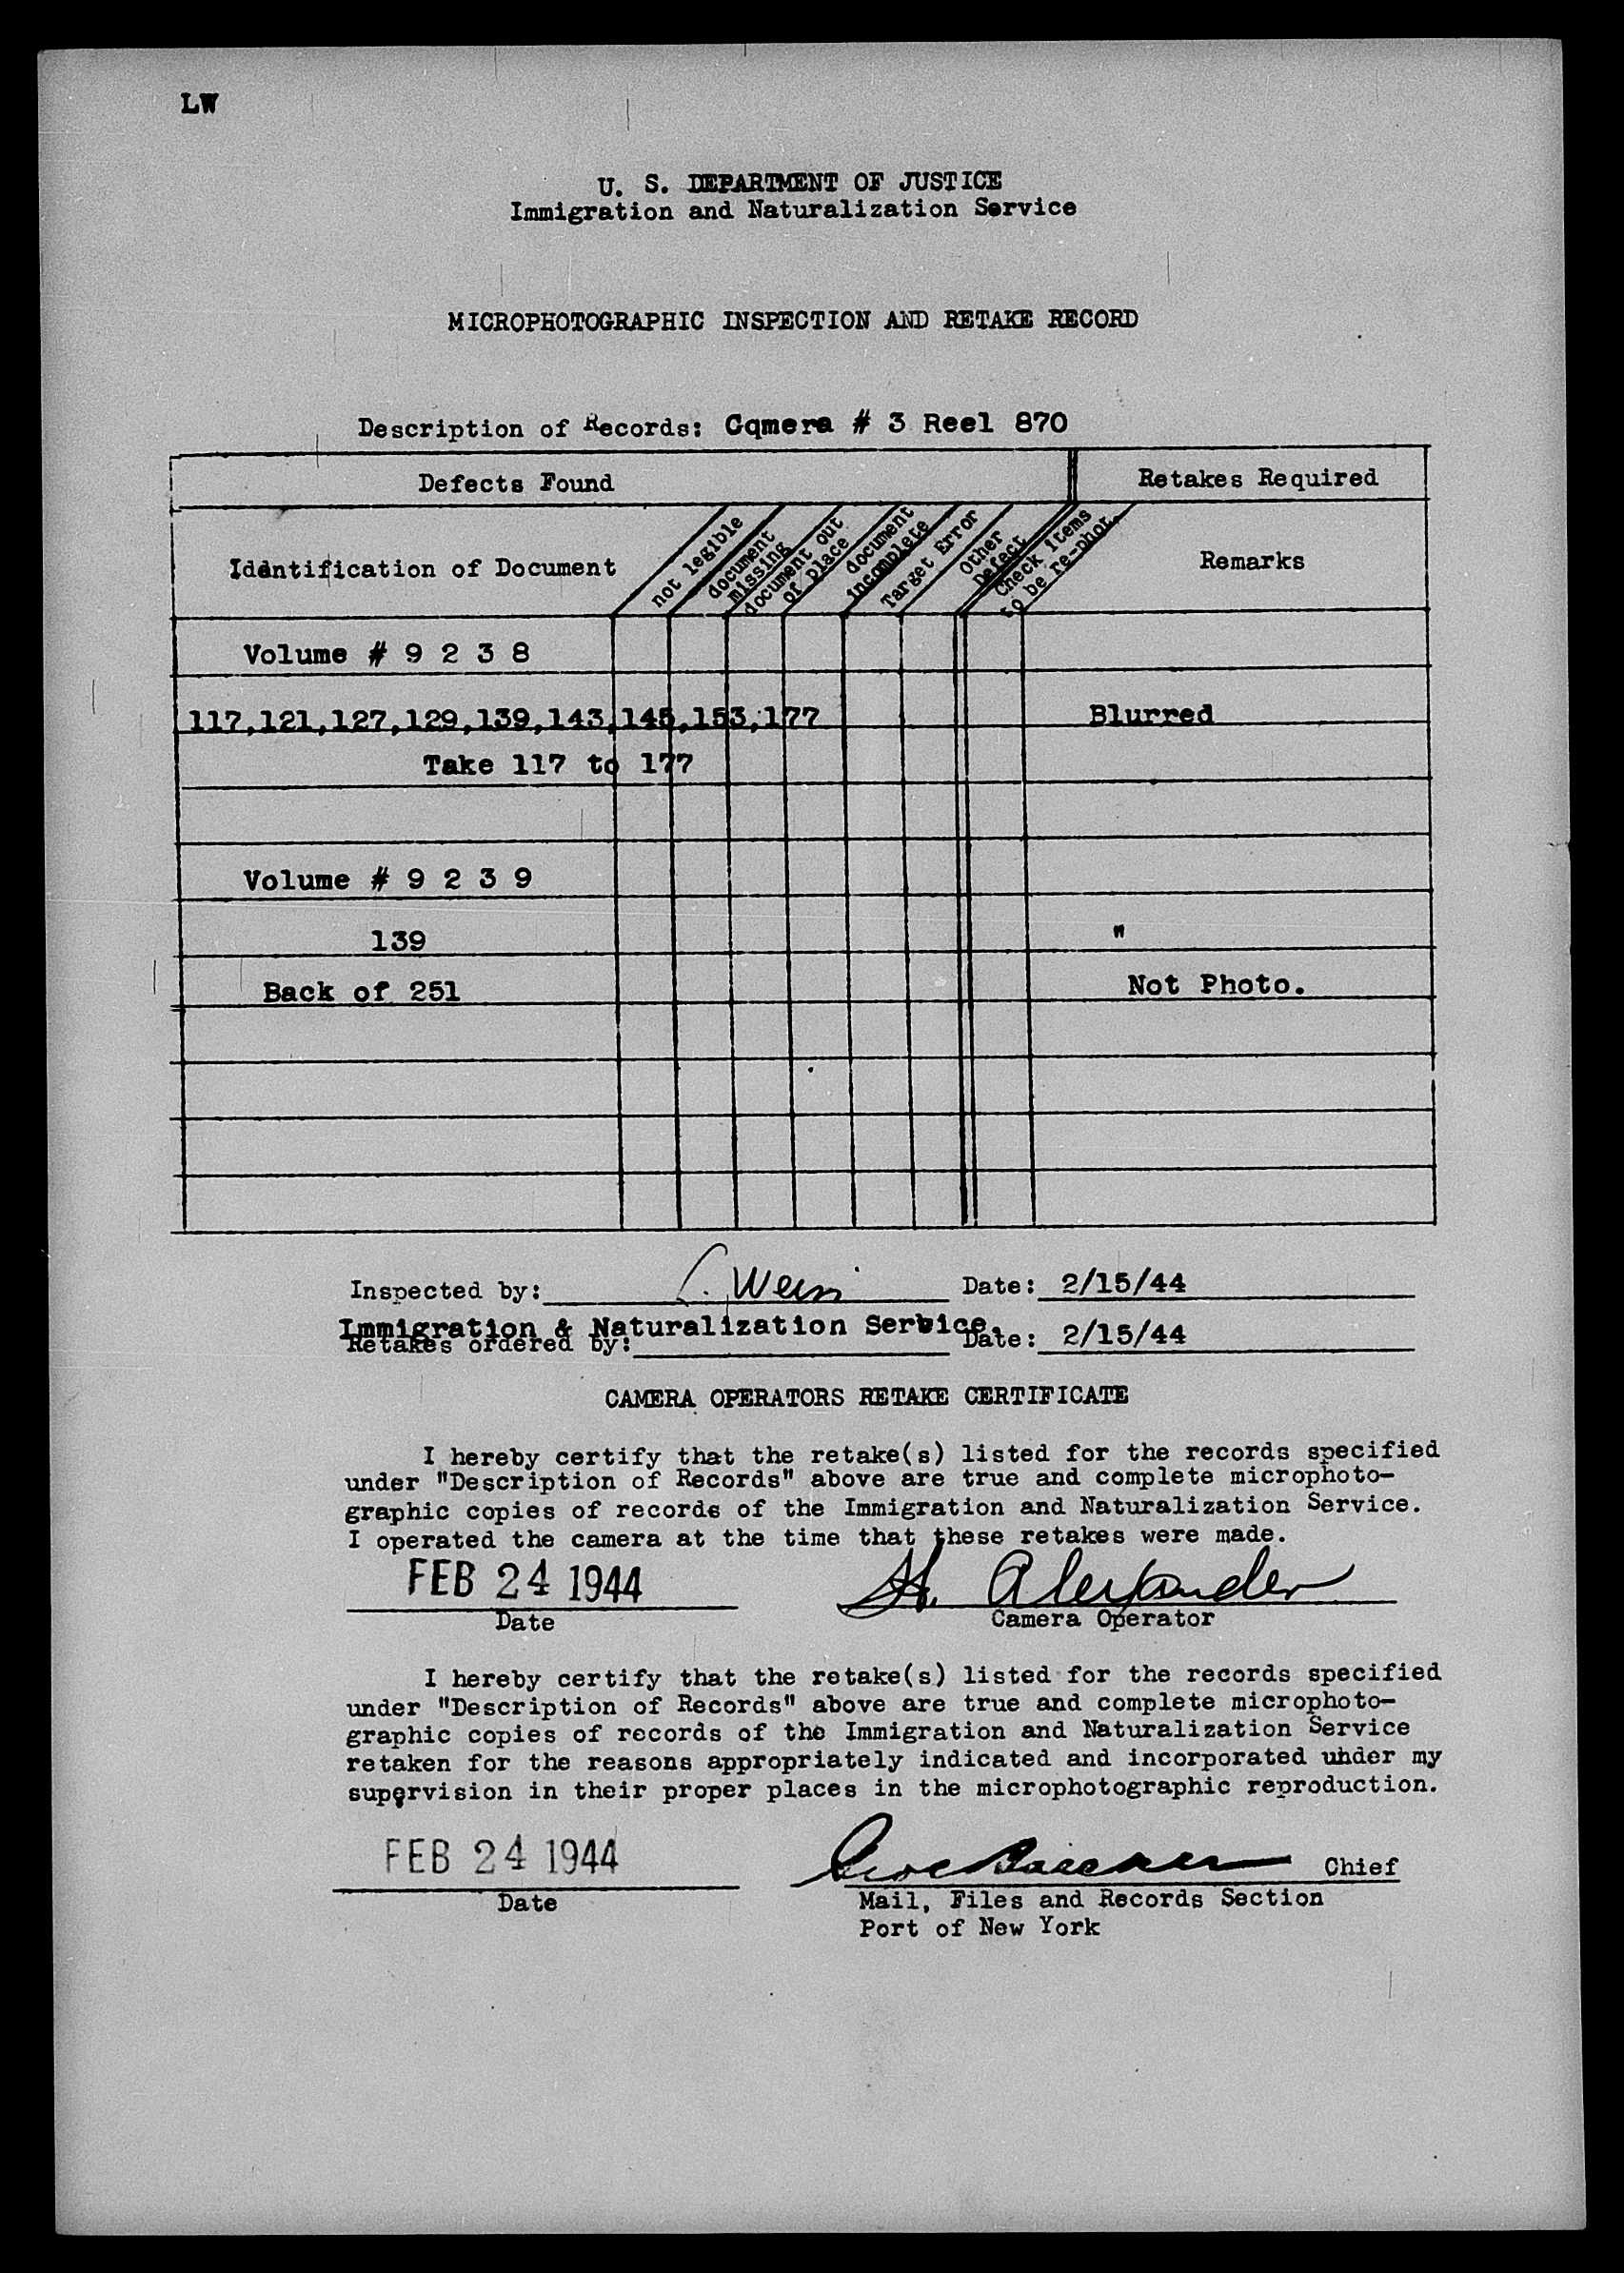 LW
U. S. DEPARTMENT OF JUSTICE
Immigration and Naturalization Service
MICROPHOTOGRAPHIC INSPECTION AND RETAKE RECORD
Description of Records: Cqmera # 3 Reel 870
Defects Found
Retakes Required
Identification of Document
not legible
document missing
document out of place
document incomplete
Target Error
Other Defect
Check items to be re-phot.
Remarks
Volume # 9 2 3 8
117,121,127,129,139,143,145,153,177 Blurred
Take 117 to 177
Volume # 9 2 3 9
139 "
Back of 251 Not Photo.
Inspected by: L. Weiss Date: 2/15/44
Immigration & Naturalization Service.
Retakes ordered by: Date: 2/15/44
CAMERA OPERATORS RETAKE CERTIFICATE
I hereby certify that the retake(s) listed for the records specified
under "Description of Records" above are true and complete microphoto-
graphic copies of records of the Immigration and Naturalization Service.
I operated the camera at the time that these retakes were made.
FEB 24 1944 H. Alexander
Date Camera Operator
I hereby certify that the retake(s) listed for the records specified
under "Description of Records" above are true and complete microphoto-
graphic copies of records of the Immigration and Naturalization Service
retaken for the reasons appropriately indicated and incorporated under my
supervision in their proper places in the microphotographic reproduction.
FEB 24 1944 Chief
Date Mail, Files and Records Section
Port of New York